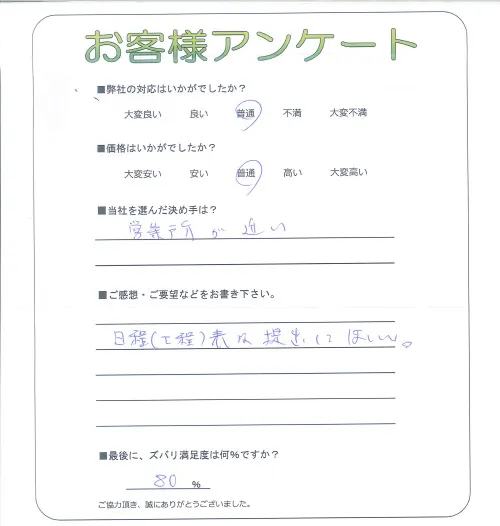 お客様アンケート
■弊社の対応はいかがでしたか？
大変良い 良い 普通 不満 大変不満
■価格はいかがでしたか？
大変安い 安い 普通 高い 大変高い
■当社を選んだ決め手は？
営業所が近い
■ご感想・ご要望などをお書き下さい。
日程(工程)表は提出してほしい。
■最後に、ズバリ満足度は何%ですか？
80 %
ご協力頂き、誠にありがとうございました。